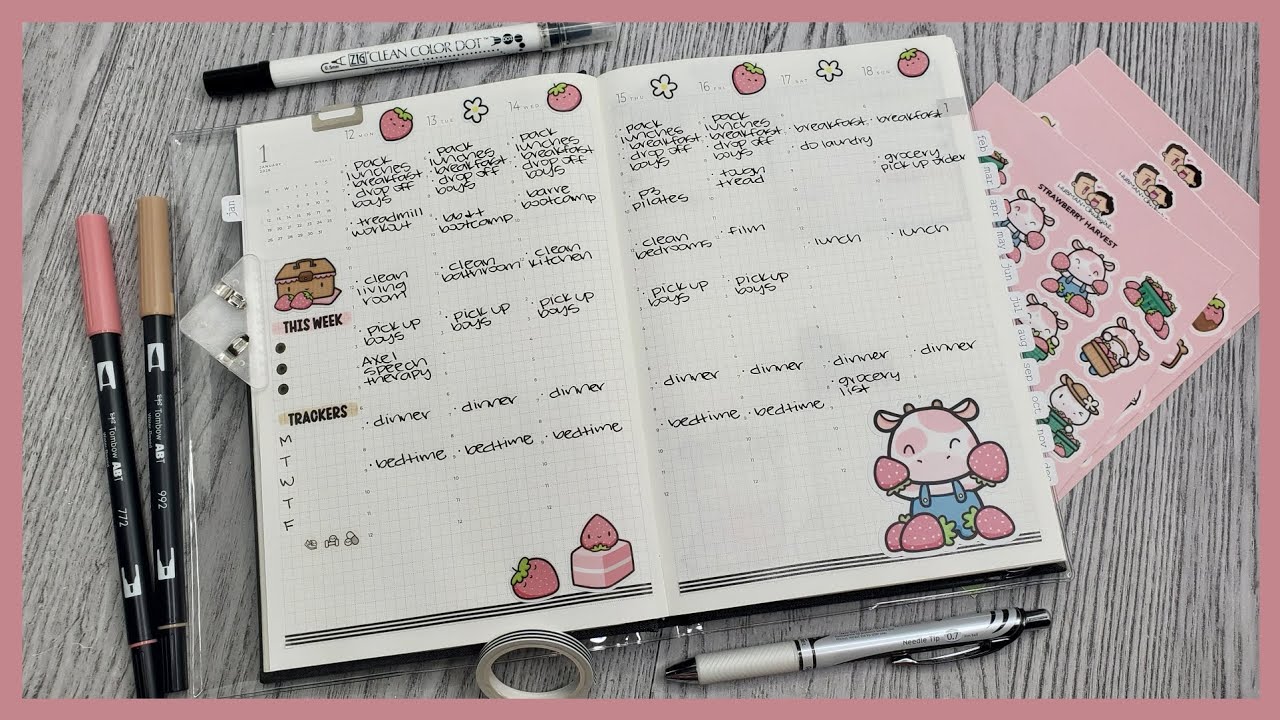 ZIG CLEAN COLOR DOT
1
JANUARY
WEEK 3
12 MON
13 TUE
14 WED
15 THU
16 FRI
17 SAT
18 SUN
1
jan
• pack
lunches
• breakfast
• drop off
boys
• treadmill
workout
• clean
living
room
• pick up
boys
• Axel
speech
therapy
• dinner
• bedtime
• pack
lunches
• breakfast
• drop off
boys
bootcamp
• clean
bathroom
• pick up
boys
• dinner
• bedtime
• pack
lunches
• breakfast
• drop off
boys
• barre
bootcamp
• clean
kitchen
• pick up
boys
• dinner
• bedtime
• pack
lunches
• breakfast
• drop off
boys
• p3
pilates
• clean
bedrooms
• pick up
boys
• dinner
• bedtime
• pack
lunches
• breakfast
• drop off
boys
• tough
tread
• film
• pick up
boys
• dinner
• bedtime
• breakfast
• do laundry
• lunch
• dinner
• grocery
list
• breakfast
• grocery
pick up order
• lunch
• dinner
THIS WEEK
TRACKERS
M
T
W
T
F
feb
mar
apr
may
jun
jul
aug
sep
oct
nov
dec
STRAWBERRY HARVEST
Tombow ABT
772
Tombow ABT
992
Needle Tip 0.7